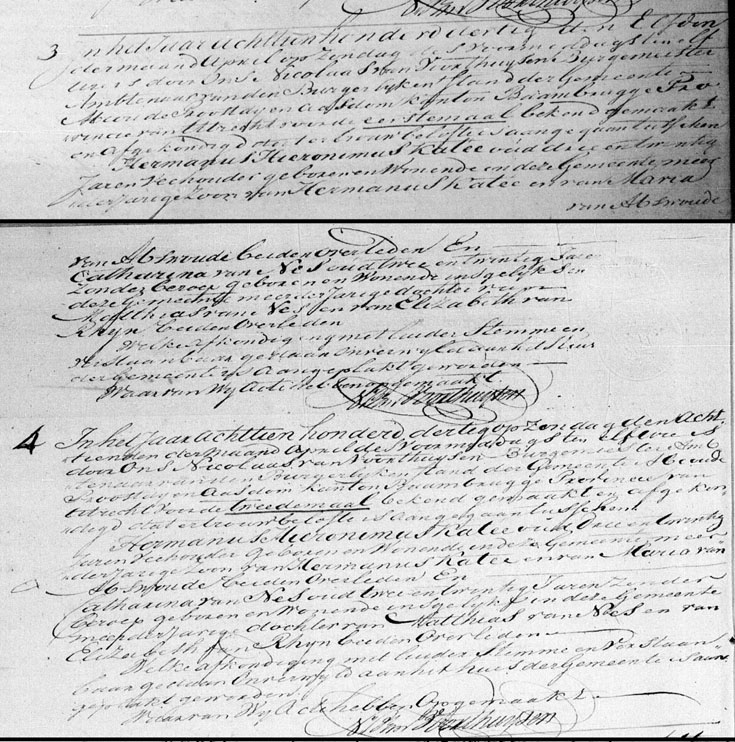 N. van Voorthuijsen
3 In het Jaar achttien honderd dertig den Elfden
der maand April op Zondag des Voormiddags ten elf
ure is door Ons Nicolaas van Voorthuysen Burgemeester
Ambtenaar van den Burgerlyken Stand der Gemeente
Abcoude Proostdy en Aasdom Kanton Baambrugge Pro
vincie van Utrecht voor de eerstemaal bekend gemaakt
en afgekondigd dat er trouwbeloften is aangegaan tusschen
Hermanus Hieronimus Kalee oud drie en twintig
Jaren Veehouder geboren en Wonende in deze Gemeente meer
derjarige Zoon van Hermanus Kalee en van Maria
van Abswoude
van Abswoude beiden Overleden En
Catharina van Nes oud twee en twintig Jaren
Zonder beroep geboren en Wonende insgelyks in
deze Gemeente meerderjarige dochter van
Matthias van Nes en van Elizabeth van
Rhyn beiden Overleden
Welke Afkondiging met luider Stemme en
Verstaanbaar gedaan Onverwyld aan het huis
der Gemeente is Aangeplakt geworden
Waarvan Wy Acte hebben opgemaakt
N. van Voorthuijsen
4 In het Jaar achttien honderd dertig op Zondag den Acht
tienden der maand April des Voormiddags ten Elf ure is
door Ons Nicolaas van Voorthuysen Burgemeester Amb
tenaar van den Burgerlyken Stand der Gemeente Abcoude
Proostdy en Aasdom Kanton Baambrugge Provincie van
Utrecht voor de tweedemaal bekend gemaakt en afgekon
digd dat er trouwbelofte is aangegaan tusschen
Hermanus Hieronimus Kalee oud Drie en twintig
Jaren Veehouder geboren en Wonende in deze Gemeente meer
derjarige Zoon van Hermanus Kalee en van Maria van
Abswoude beiden Overleden En
Catharina van Nes oud twee en twintig Jaren Zonder
beroep geboren en Wonende insgelyks in deze Gemeente
meerderjarige dochter van Matthias van Nes en van
Elizabeth van Rhyn beiden Overleden
Welke afkondiging met luider Stemme en Verstaan
baar gedaan Onverwyld aan het huis der Gemeente is aan
geplakt geworden
Waarvan Wy Acte hebben Opgemaakt
N. van Voorthuijsen